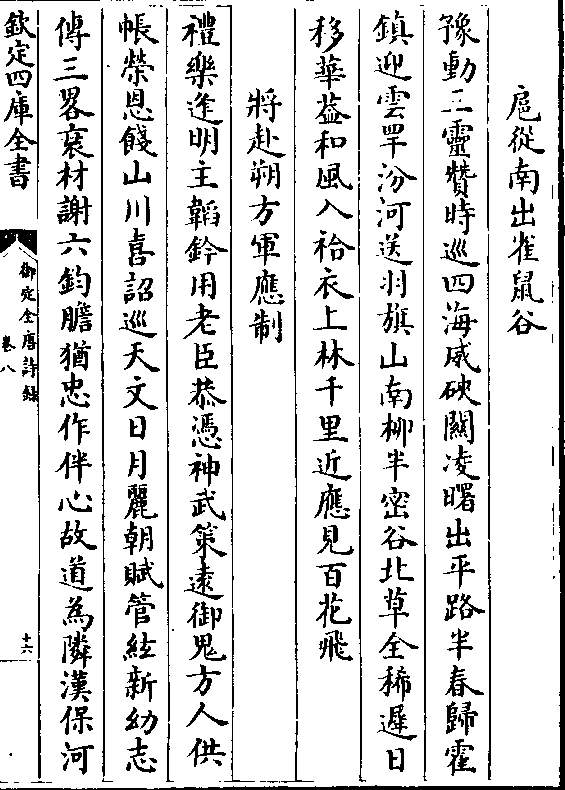 扈從南出雀鼠谷
豫動三靈贊時巡四海威硤關凌曙出平路半春歸霍
鎮迎雲罕汾河送羽旗山南柳半密谷北草全稀遲日
移華葢和風入袷衣上林千里近應見百花飛
將赴朔方軍應制
禮樂逢明主韜鈐用老臣恭憑神武策逺御鬼方人供
帳榮恩餞山川喜詔巡天文日月麗朝賦管絃新幼志
傳三畧衰材謝六鈞膽猶忠作伴心故道為隣漢保河
欽定四庫全書
御定全唐詩錄
卷八
十六